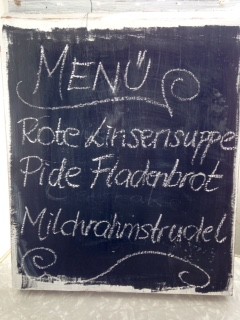 MENÜ
Rote Linsensuppe
Pide Fladenbrot
Milchrahmstrudel